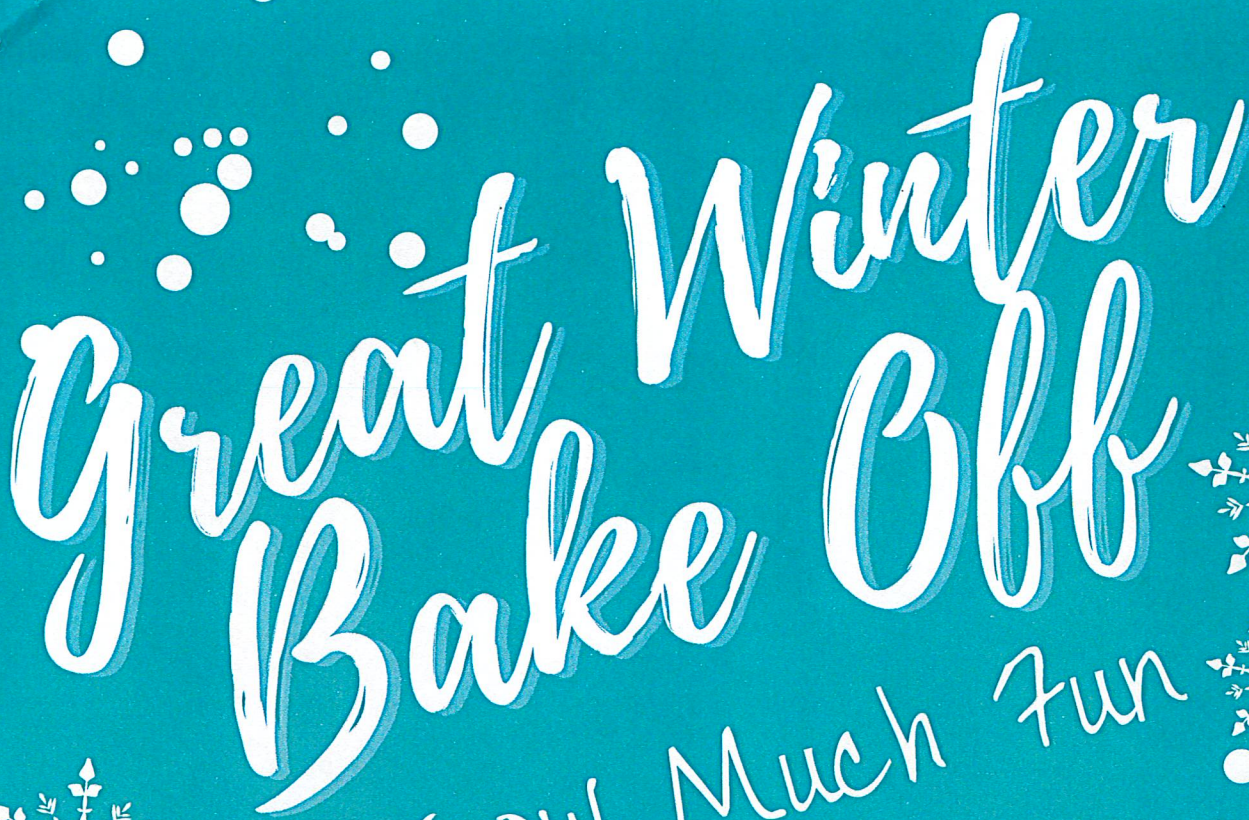 Great Winter
Bake Off
Much Fun